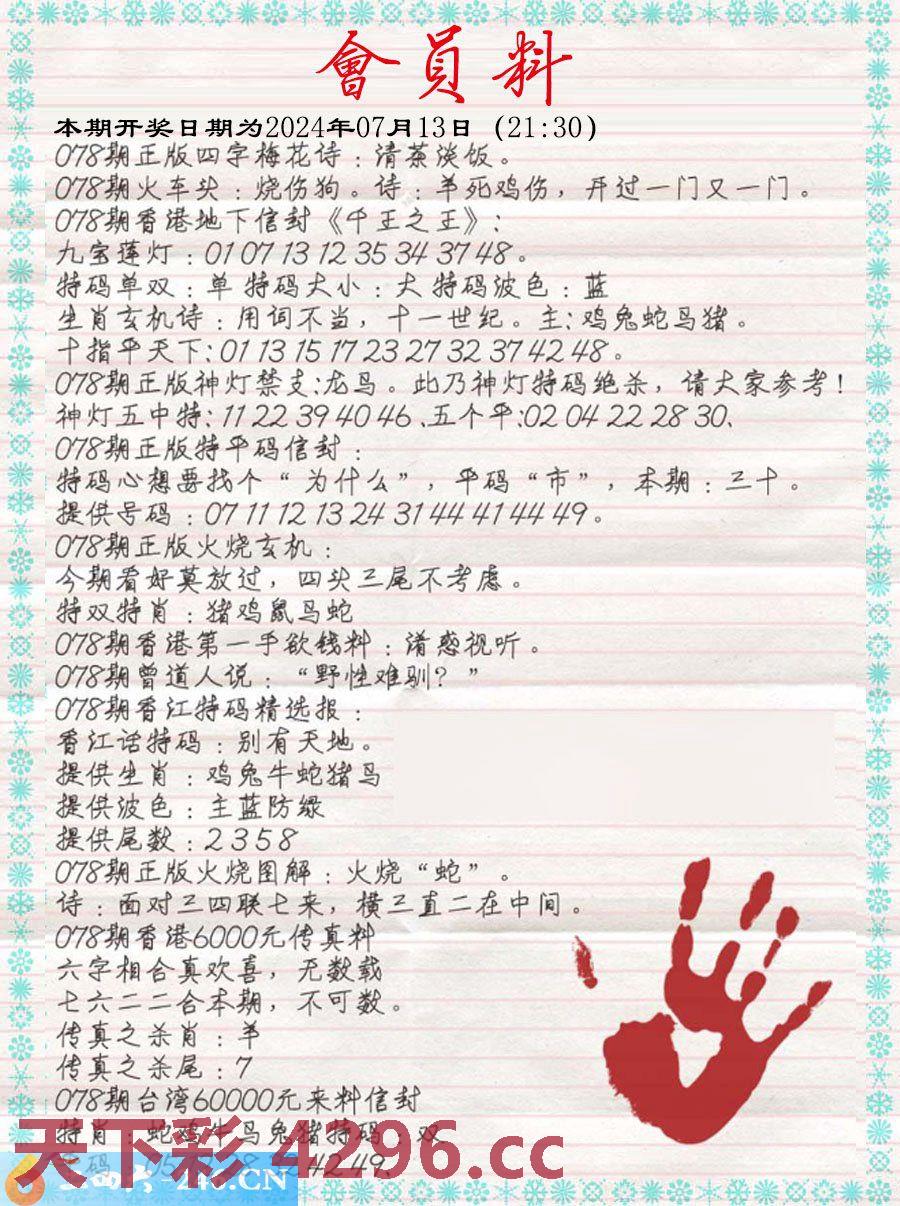 會員料
本期开奖日期为2024年07月13日（21:30）
078期正版四字梅花诗：清茶淡饭。
078期火车头：烧伤狗。诗：羊死鸡伤，开过一门又一门。
078期香港地下信封《千王之王》：
九宝莲灯：01 07 13 12 35 34 37 48。
特码单双：单 特码大小：大 特码波色：蓝
生肖玄机诗：用词不当，十一世纪。主：鸡兔蛇马猪。
十指平天下：01 13 15 17 23 27 32 37 42 48。
078期正版神灯禁支：龙马。此乃神灯特码绝杀，请大家参考！
神灯五中特：11 22 39 40 46、五个平：02 04 22 28 30、
078期正版特平码信封：
特码心想要找个“为什么”，平码“市”，本期：三十。
提供号码：07 11 12 13 24 31 44 41 44 49。
078期正版火烧玄机：
今期看好莫放过，四头三尾不考虑。
特双特肖：猪鸡鼠马蛇
078期香港第一手欲钱料：淆惑视听。
078期曾道人说：“野性难驯？”
078期香江特码精选报：
香江话特码：别有天地。
提供生肖：鸡兔牛蛇猪马
提供波色：主蓝防绿
提供尾数：2 3 5 8
078期正版火烧图解：火烧“蛇”。
诗：面对三四联七来，横三直二在中间。
078期香港6000元传真料
六字相合真欢喜，无数载
七六二二合本期，不可数。
传真之杀肖：羊
传真之杀尾：7
078期台湾60000元来料信封
特肖：蛇鸡牛马兔猪特码：双
42 49、
天下彩 4296.cc
246.CN